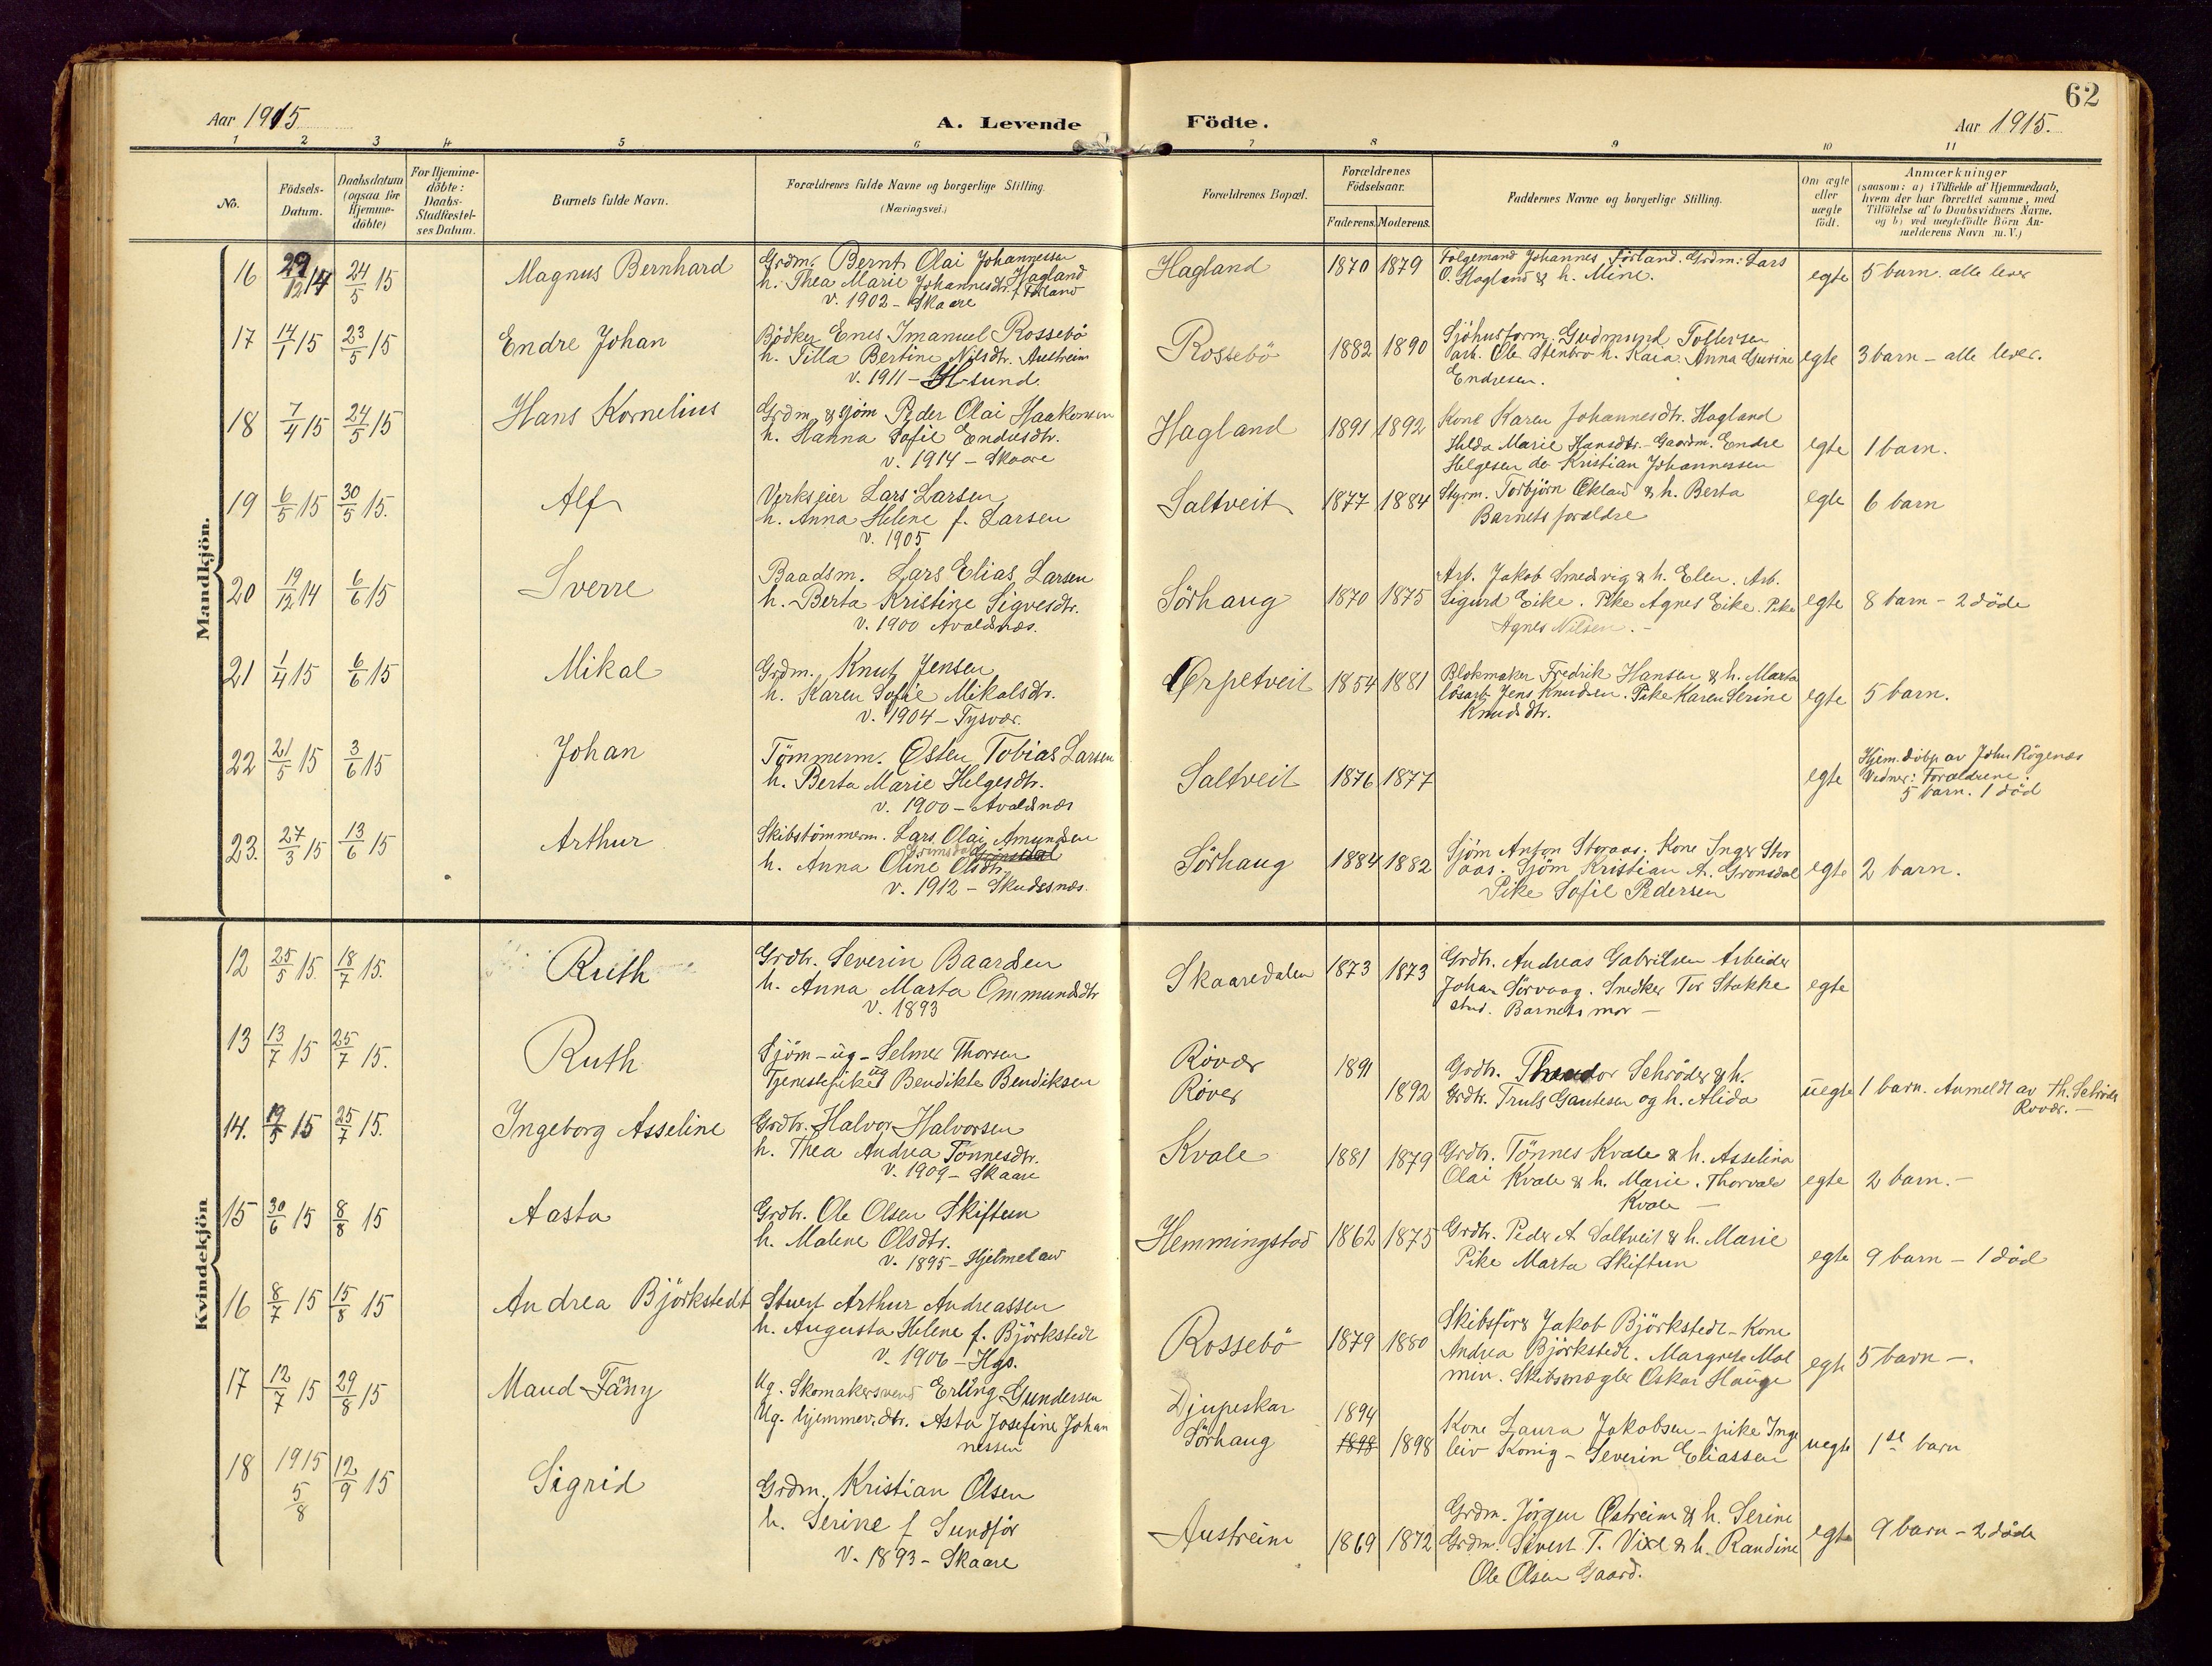 62
Aar 1915
A. Levende Födte.
Aar 1915.
1 2 3 4 5 6 7 8 9 10 11
No.
Födsels-
Datum.
Daabsdatum
(ogsaa for
Hjemme-
döbte)
For Hjemme-
döbte:
Daabs-
Stadfæstel-
ses Datum.
Barnets fulde Navn.
Forældrenes fulde Navne og borgerlige Stilling.
(Næringsvei.)
Forældrenes Bopæl.
Forældrenes
Födselsaar.
Faderens. Moderens.
Faddernes Navne og borgerlige Stilling.
Om ægte
eller
uægte
födt.
Anmærkninger
(saasom: a) i Tilfælde af Hjemmedaab,
hvem der har forrettet samme, med
Tilföielse af to Daabsvidners Navne.
og b) ved uægtefödte Börn An-
melderens Navn m. V.)
Mandkjön.
16 29/12 14 24/5 15 Magnus Bernhard
Grdm. Bernt Olai Johannessen
Hagland
h. Thea Marie Johannesdtr. f. Förland
v. 1902 - Skaare
Hagland 1870 1879
Folgemand Johannes Förland. Grdm: Lars
O. Hagland & h. Mine.
egte 5 barn. alle lever
17 14/1 15 23/5 15 Endre Johan
Bödker Enes Imanuel Rossebö
h. Tilla Bertine Nilsdtr. Austreim
v. 1911 - H-sund.
Rossebö 1882 1890
Sjöhusform. Gudmund Tollefsen
arb. Ole Stenbro h. Kaia. Anna Gurine
Endresen.
egte 3 barn - alle lever.
18 7/4 15 24/5 15 Hans Kornelius
Grdm. & sjöm Peder Olai Haakonsen
h. Hanna Sofie Endresdtr.
v. 1914 - Skaare
Hagland 1891 1892
Kone Karen Johannesdtr. Hagland
Hulda Marie Hansdtr. - Gaardm. Endre
Helgesen do Kristian Johannessen
egte 1 barn.
19 6/5 15 30/5 15. Alf
Verkseier Lars Larsen
h. Anna Helene f. Larsen
v. 1905
Saltveit 1877 1884
Styrm. Torbjörn Økland & h. Berta
Barnets forældre
egte 6 barn
20 19/12 14 6/6 15 Sverre
Baadsm. Lars Elias Larsen
h. Berta Kristine Sigvesdtr.
v. 1900 Avaldsnæs.
Sörhaug 1870 1875
Arb. Jakob Smedvig & h. Elen. Arb.
Sigurd Eike. Pike Agnes Eike. Pike
Agnes Nilsen. -
egte 8 barn - 2 döde
21 1/4 15 6/6 15 Mikal
Grdm. Knut Jensen
h. Karen Sofie Mikalsdtr.
v. 1904 - Tysvær.
Erpetveit 1854 1881
Blokmaker Fredrik Hansen & h. Marta
lösarb. Jens Knudsen. Pike Karen Serine
Knudsdtr.
egte 5 barn.
22 21/5 15 3/6 15 Johan
Tömmerm. Østen Tobias Larsen
h. Berta Marie Helgesdtr.
v. 1900 - Avaldsnæs
Saltveit 1876 1877
egte
Hjem.döbt av John Rögenæs
Vidner: Forældrene.
5 barn. 1 död
23. 27/3 15 13/6 15 Arthur
Skibstömmerm. Lars Olai Amundsen
Grimsdal Grönsdal
h. Anna Oline Olsdtr.
v. 1912 - Skudesnæs.
Sörhaug 1884 1882
Sjöm Anton Storaas. Kone Inger Stor
aas. Sjöm Kristian A. Gronsdal
Pike Sofie Pedersen
egte 2 barn.
Kvindekjön
12 25/5 15 18/7 15. Ruth
Grdbr. Severin Baardsen
h. Anna Marta Ommundsdtr
v. 1893
Skaaredalen 1873 1873
Grdbr. Andreas Gabrielsen Arbeider
Johan Sörvaag. Snedker Tor Stakke
stad. Barnets mor -
egte
13 13/7 15 25/7 15. Ruth
Sjöm - ug - Selmer Thorsen
Tjenestepike ug Bendikte Bendiksen
Rövær 1891
Röver 1892
Grdbr. Theodor Schröder & h.
Grdbr. Truls Gautesen og h. Alida
uegte 1 barn. Anmeldt av Th. Schröder
Rövær. -
14. 19/5 15 25/7 15. Ingeborg Asseline
Grdbr. Halvor Halvorsen
h. Thea Andrea Tönnesdtr.
v. 1909 - Skaare
Kvale 1881 1879
Grdbr. Tönnes Kvale & h. Asselina
Olai Kvale & h. Marie. Thorvald
Kvale -
egte 2 barn. -
15 30/6 15 8/8 15 Aasta
Grdbr. Ole Olsen Skiftun
h. Malene Olsdtr.
v. 1895 - Hjelmeland
Hemmingstad 1862 1875
Grdbr. Peder A. Saltveit & h. Marie
Pike Marta Skiftun
egte 9 barn - 1 död
16 8/7 15 15/8 15 Andrea Björkstedt
Stuert Arthur Andreassen
h. Augusta Helene f. Björkstedt
v. 1906 - Hgs.
Rossebö 1879 1880
Skibsförer Jakob Björkstedt - Kone
Andrea Björkstedt. Margrete Mal
min. Skibsmægler Oskar Hauge
egte 5 barn -.
17 12/7 15 29/8 15 Maud Fany
Ug. Skomakersvend Erling Gundersen
Ug. hjemmev. dtr. Asta Josefine Johan
nessen
Djupeskar 1894
Sörhaug 1898 1898
Kone Laura Jakobsen - pike Inge
leiv Konig - Severin Eliassen
uegte 1ste barn
18 1915 5/8 12/9 15 Sigrid
Grdm. Kristian Olsen
h. Serine f Sundför
v. 1893 - Skaare
Austreim 1869 1872
Grdm. Jörgen Østreim & h. Serine
Grdm. Sivert T. Vixe & h. Randine
Ole Olsen Gaard.
egte 9 barn - 2 döde